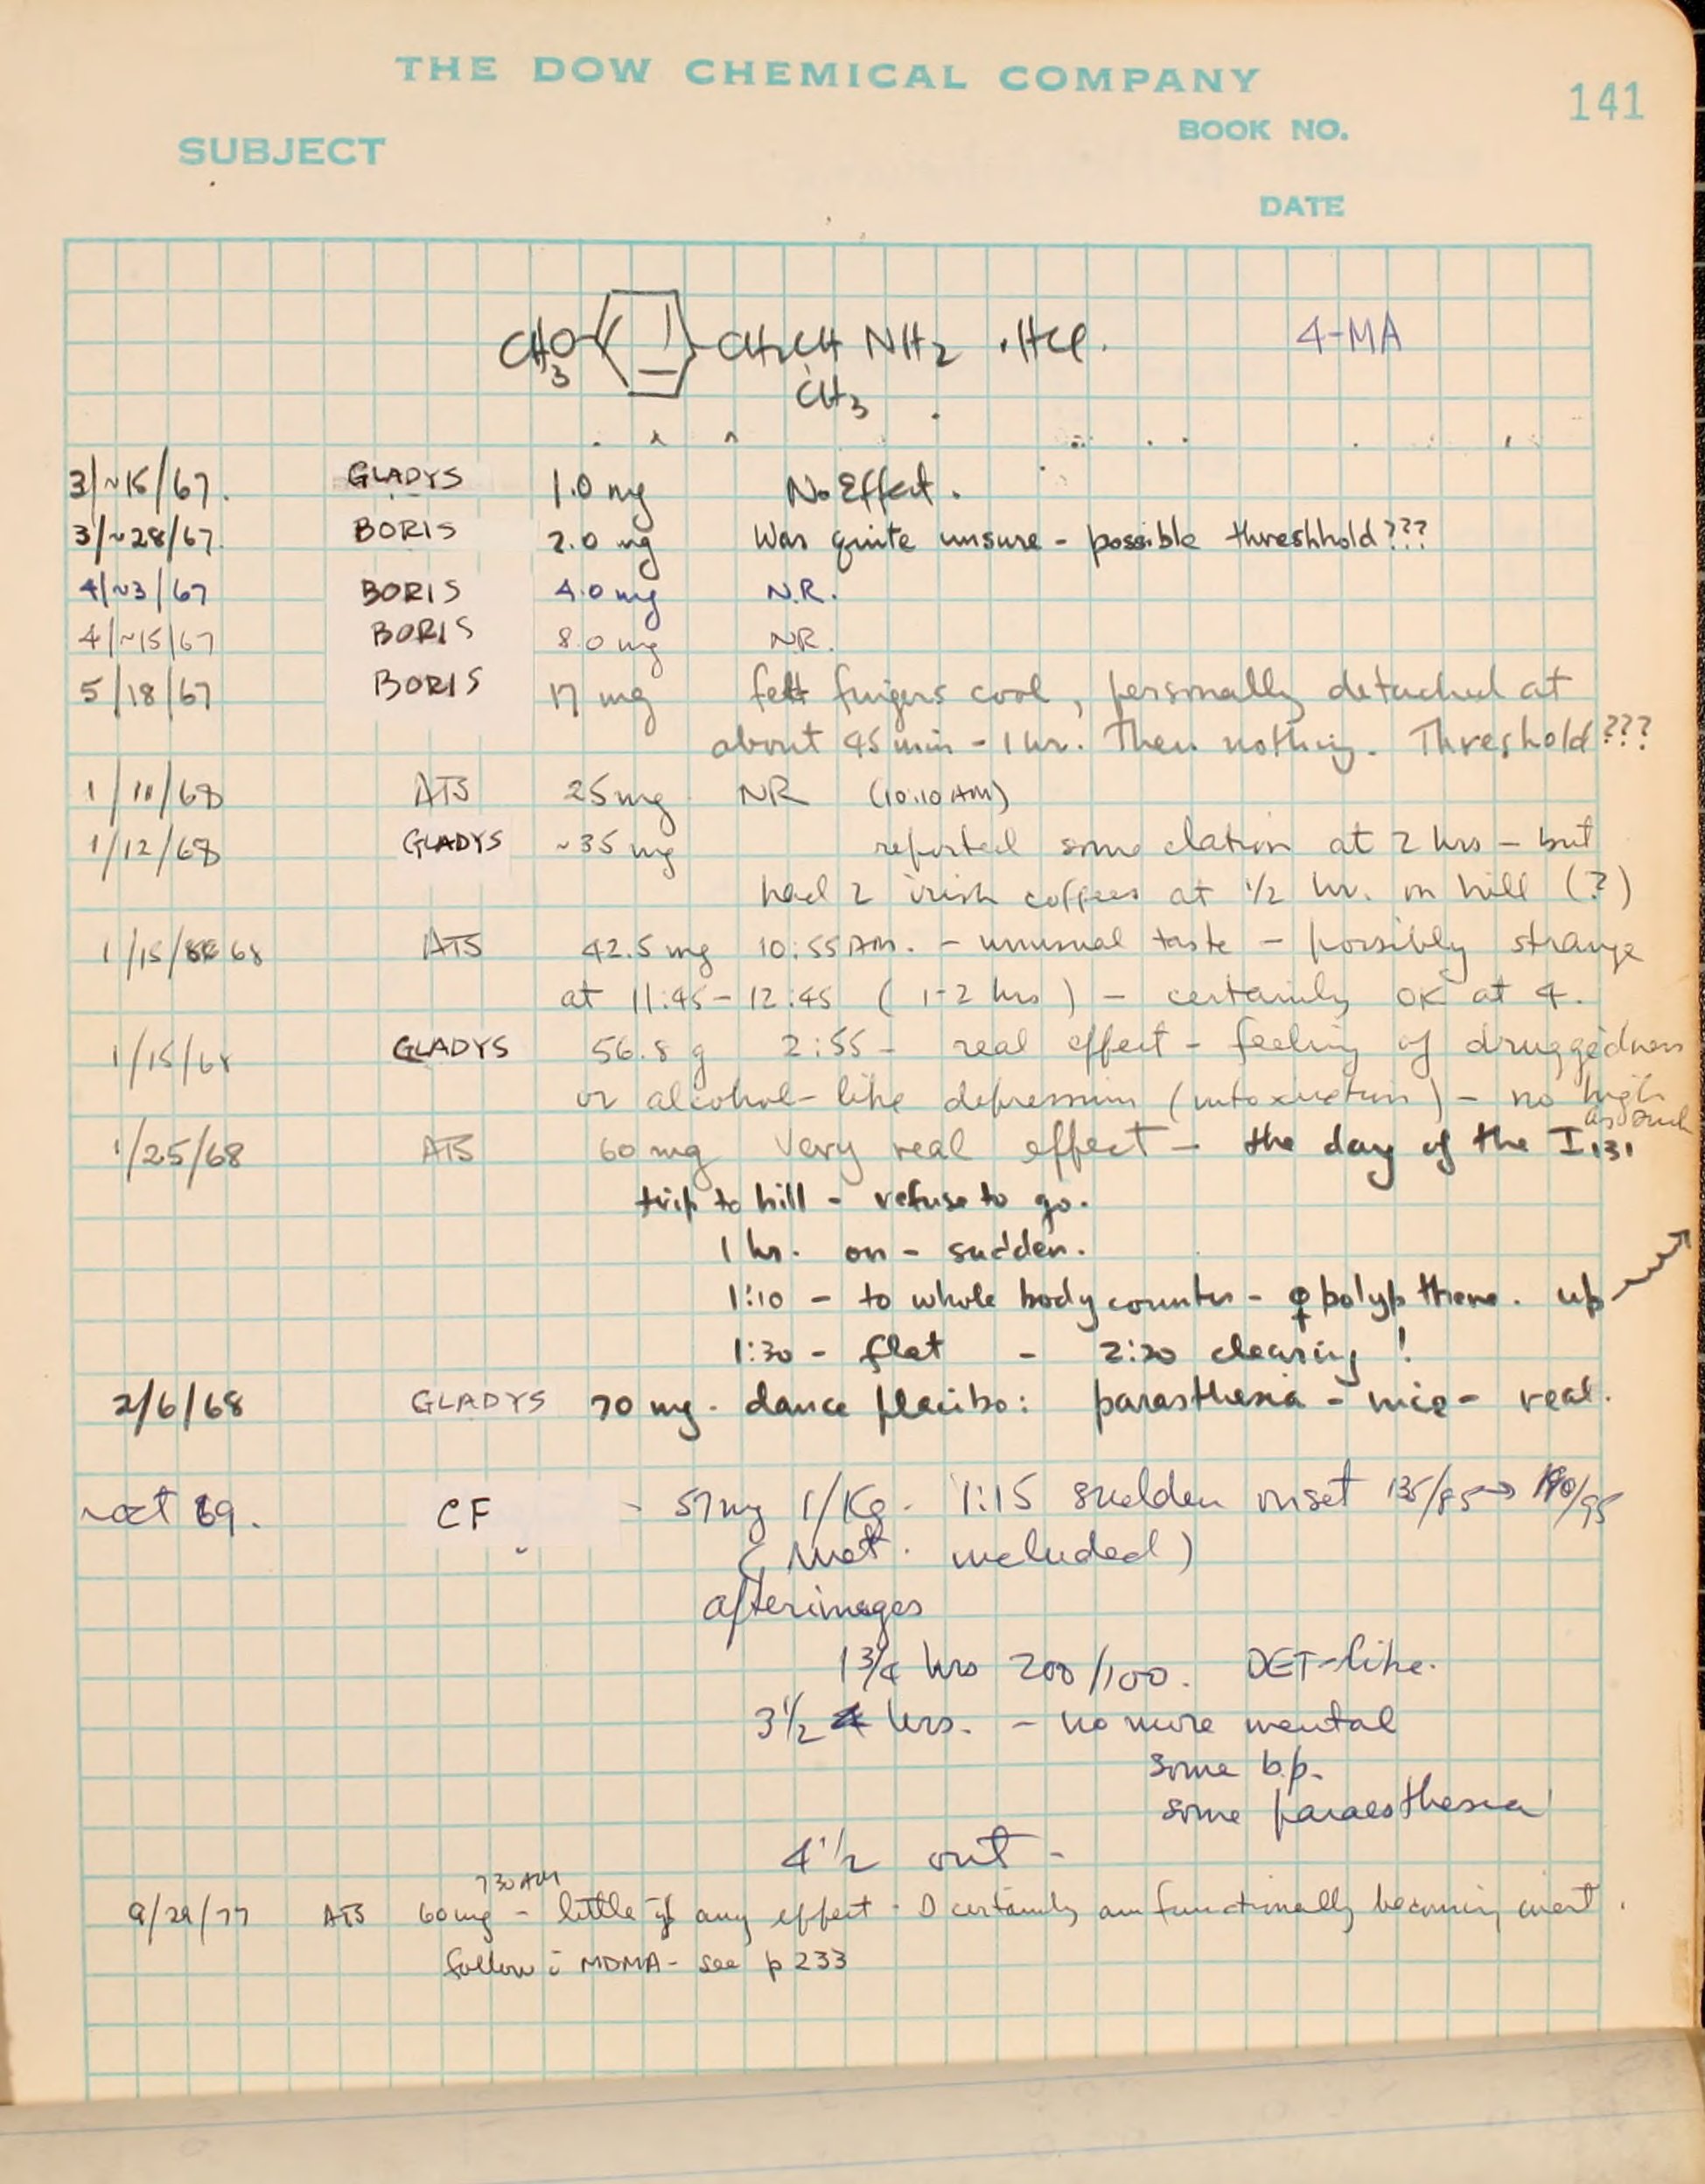 THE DOW CHEMICAL COMPANY
141
BOOK NO.
SUBJECT
DATE
CH3O CH2CH NH2 .HCl. 4-MA
CH3
3/~15/67. GLADYS 1.0 mg No Effect.
3/~28/67. BORIS 2.0 mg Was quite unsure - possible threshhold???
4/~3/67 BORIS 4.0 mg N.R.
4/~15/67 BORIS 8.0 mg NR.
5/18/67 BORIS 17 mg felt fingers cool, personally detached at
about 45 min - 1 hr. Then nothing. Threshold???
1/11/68 ATS 25 mg NR (10:10 AM)
1/12/68 GLADYS ~35 mg reported some elation at 2 hrs - but
had 2 irish coffees at 1/2 hr. on hill (?)
1/15/68 ATS 42.5 mg 10:55 AM. - unusual taste - possibly strange
at 11:45 - 12:45 (1-2 hrs) - certainly OK at 4.
1/15/68 GLADYS 56.8 g 2:55 - real effect - feeling of druggedness
or alcohol-like depression (intoxication) - no high
as such
1/25/68 ATS 60 mg Very real effect - the day of the I131
trip to hill - refuse to go.
1 hr. on - sudden.
1:10 - to whole body counter - ♀ polyp there. up
1:30 - flat - 2:30 clearing!
2/6/68 GLADYS 70 mg. dance placibo: parasthesia - nice - real.
~oct 69. CF - 57 mg 1/Kg. 1:15 sudden onset 135/85 → 190/95
(met. included)
afterimages
1 3/4 hrs 200/100. DET-like.
3 1/2 hrs. - no more mental
some b.p.
some paraesthesia
4 1/2 out -
730 AM
9/29/77 ATS 60 mg - little if any effect - I certainly am functionally becoming inert.
follow c̄ MDMA - see p 233